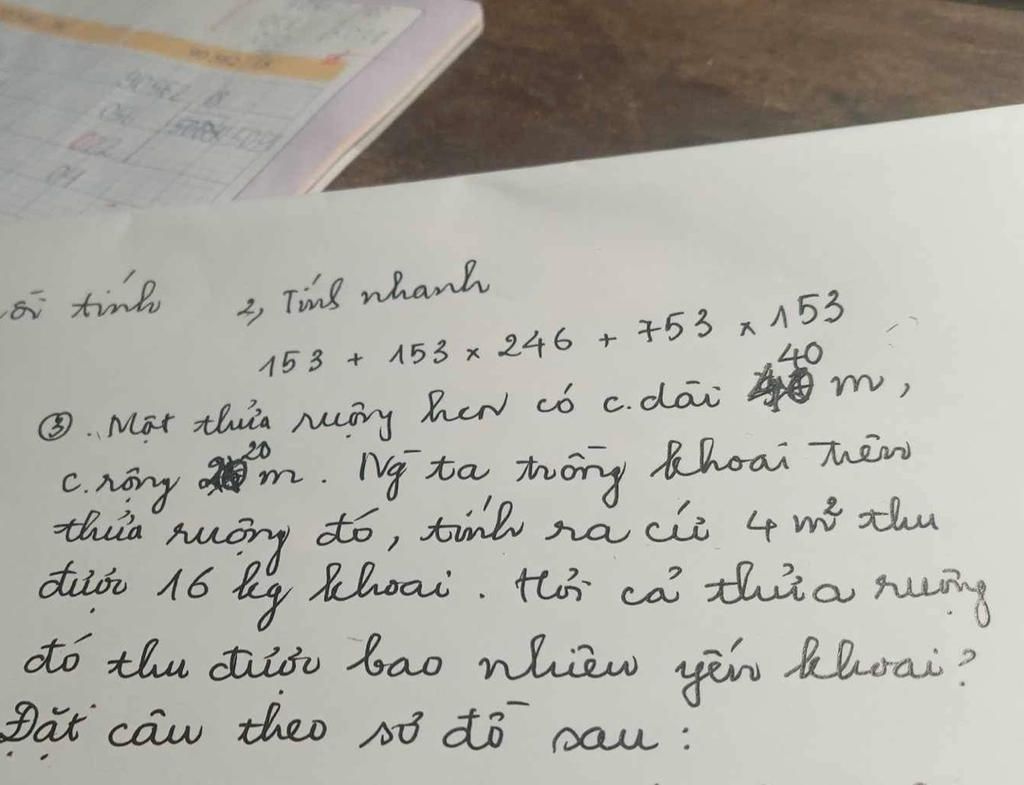 90562 18
04
022
01
tính 2, Tính nhanh
153 + 153 x 246 + 753 x 153
40
③. Một thửa ruộng hcn có c.dài m,
20
c.rộng m. Ng̅ ta trồng khoai trên
thửa ruộng đó, tính ra cứ 4 m² thu
được 16 kg khoai. Hỏi cả thửa ruộng
đó thu được bao nhiêu yến khoai?
Đặt câu theo sơ đồ sau: